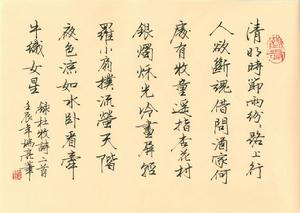 清明時節雨紛路上行
人欲斷魂借問酒家何
處有牧童遙指杏花村
銀燭秌光冷畫屏輕
羅小扇撲流螢天階
夜色涼如水卧看牽
牛織女星
錄杜牧詩二首
壬辰年